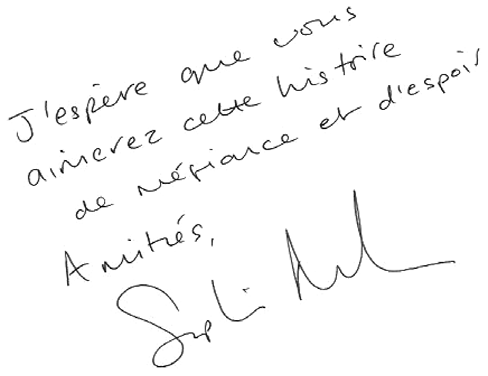 J'espère que vous
aimerez cette histoire
de méfiance et d'espoir
Amitiés,